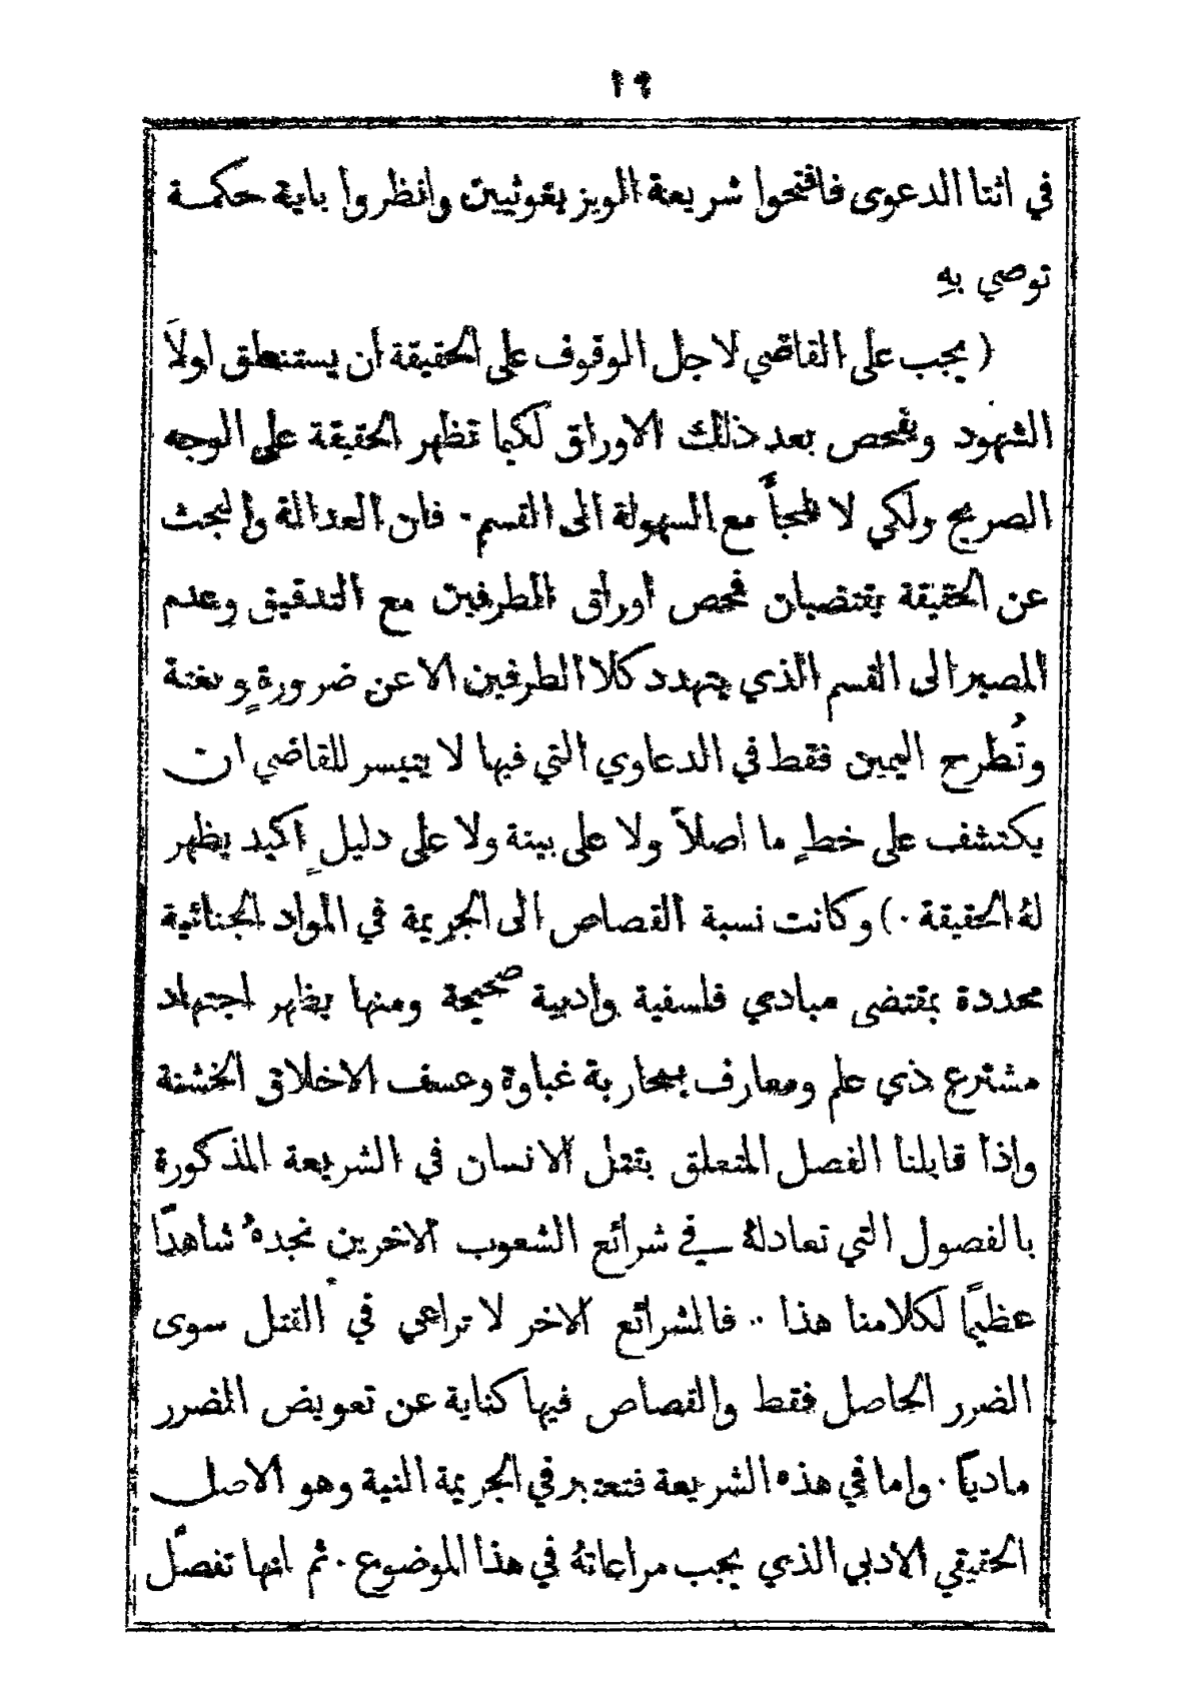 ١٩
في اثنا الدعوى فافتحوا شريعة الويزيقوثيين وانظروا باية حكمة
توصي بهِ
( يجب على القاضي لاجل الوقوف على الحقيقة أن يستنطق اولاً
الشهود ويفحص بعد ذلك الاوراق لكيما تظهر الحقيقة على الوجه
الصريح ولكي لا يلجأ مع السهولة الى القسم. فان العدالة والبحث
عن الحقيقة يقتضيان فحص اوراق الطرفين مع التدقيق وعدم
المصير الى القسم الذي يتهدد كلا الطرفين الا عن ضرورةٍ وبغتة
وتُطرح اليمين فقط في الدعاوي التي فيها لا يتيسر للقاضي ان
يكتشف على خطٍ ما اصلاً ولا على بينة ولا على دليلٍ اكيد يظهر
لهُ الحقيقة . ) وكانت نسبة القصاص الى الجريمة في المواد الجنائية
محددة بمقتضى مبادي فلسفية وادبية صحيحة ومنها يظهر اجتهاد
مشترع ذي علم ومعارف بمحاربة غباوة وعسف الاخلاق الخشنة
واذا قابلنا الفصل المتعلق بقتل الانسان في الشريعة المذكورة
بالفصول التي تعادلهُ في شرائع الشعوب الاخرين نجدهُ شاهدًا
عظيمًا لكلامنا هذا .. فالشرائع الاخر لا تراعي في القتل سوى
الضرر الحاصل فقط والقصاص فيها كناية عن تعويض الضرر
ماديًا . واما في هذه الشريعة فتعتبر في الجريمة النية وهو الاصل
الحقيقي الادبي الذي يجب مراعاتهُ في هذا الموضوع . ثم انها تفصّل